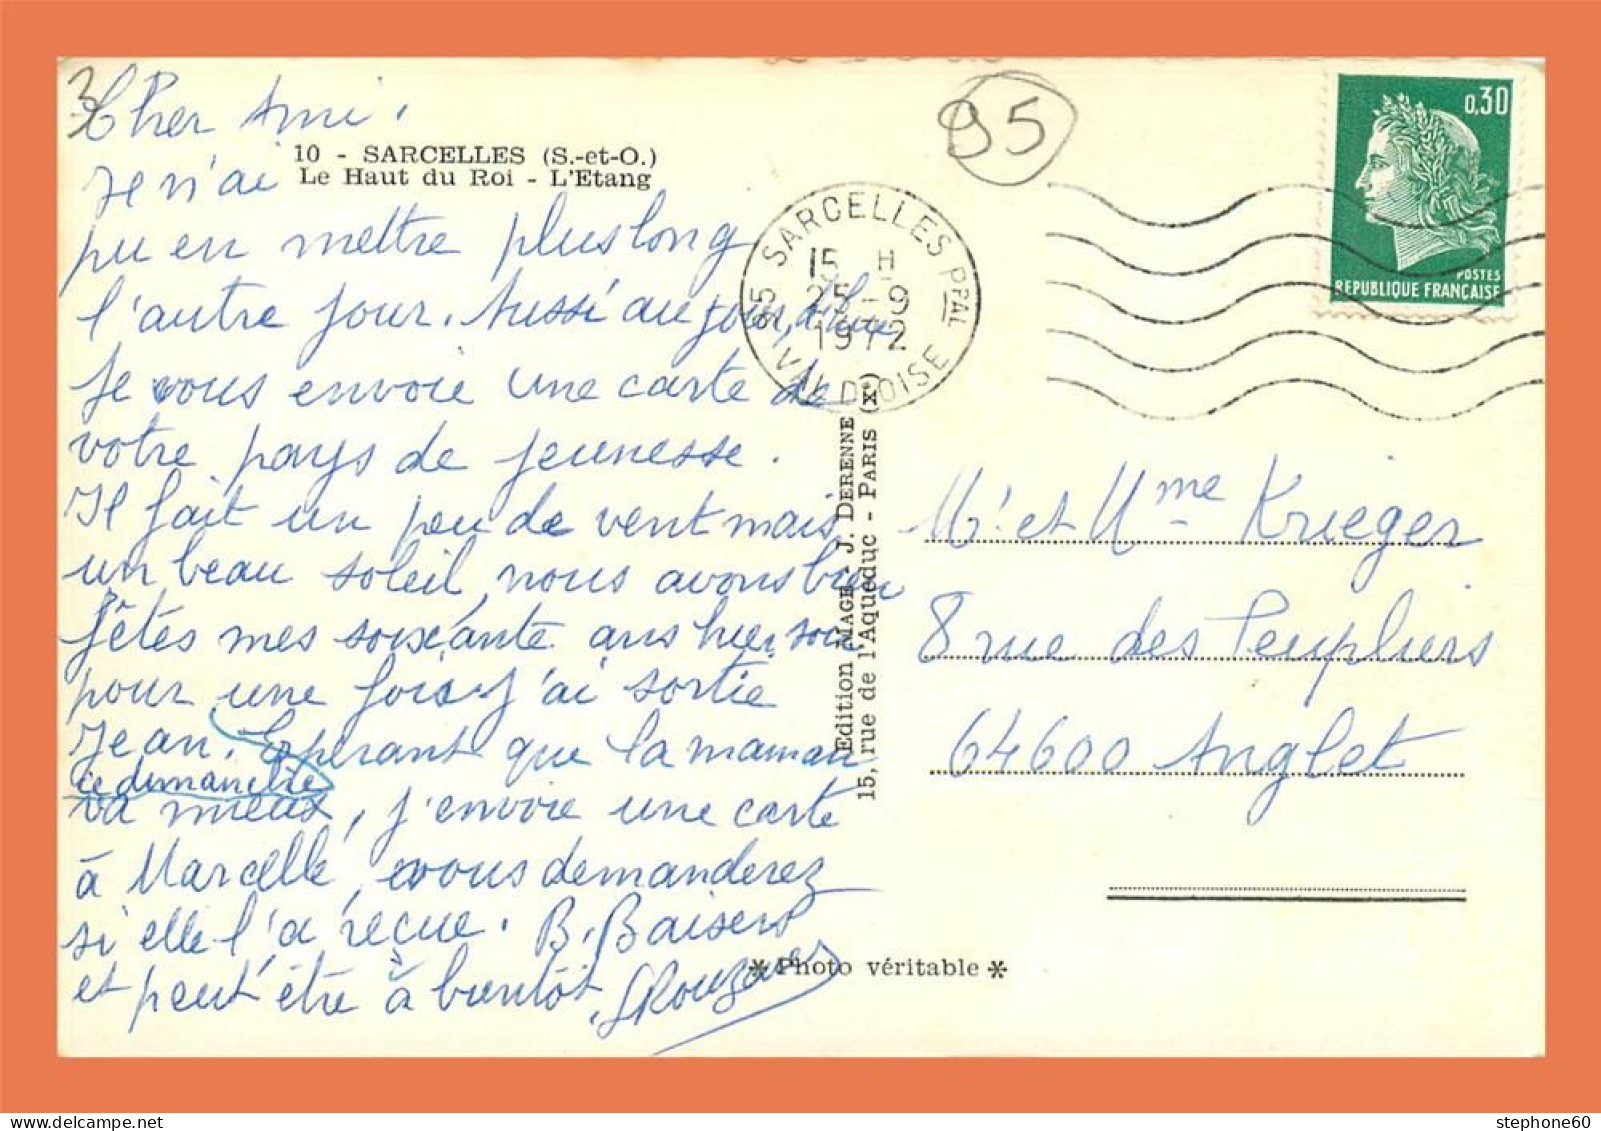 3
Cher Ami,
10 - SARCELLES (S.-et-O.)
Le Haut du Roi - L'Etang
Je n'ai
pu en mettre plus long
l'autre jour. Aussi aujourd'hui
je vous envoie une carte de
votre pays de jeunesse.
Il fait un peu de vent mais
un beau soleil, nous avons bien
fêtés mes soixante ans hier soir
pour une fois j'ai sortie
Jean. Espérant que la maman
ce dimanche
va mieux, j'envoie une carte
à Marcelle, vous demanderez
si elle l'a reçue. B. Baisers
et peut être à bientôt.
95
SARCELLES PPAL
15 H
25-9
1972
95 VAL D'OISE
0,30
POSTES
REPUBLIQUE FRANÇAISE
Edition MAGE - J. DERENNE
15, rue de l'Aqueduc - PARIS (X)
Mr et Mme Krieger
8 rue des Peupliers
64600 Anglet
* Photo véritable *
stephone60